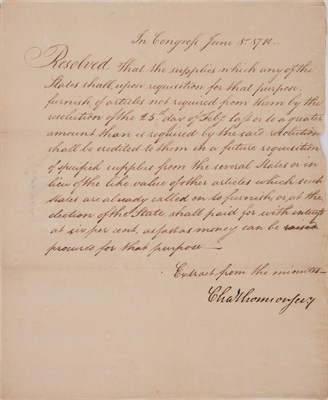 In Congress June 8th 1780.
Resolved. That the supplies which any of the
States shall, upon requisition for that purpose,
furnish of articles not required from them by the
resolution of the 25th day of Feby last or to a greater
amount than is required by the said resolution
shall be credited to them in a future requisition
of specified supplies from the several States or in
lieu of the like value of other articles which such
states are already called on to furnish, or, at the
election of the State, shall paid for with interest
at six per cent. as fast as money can be
procured for that purpose —
Extract from the minutes —
Cha Thomson Secy